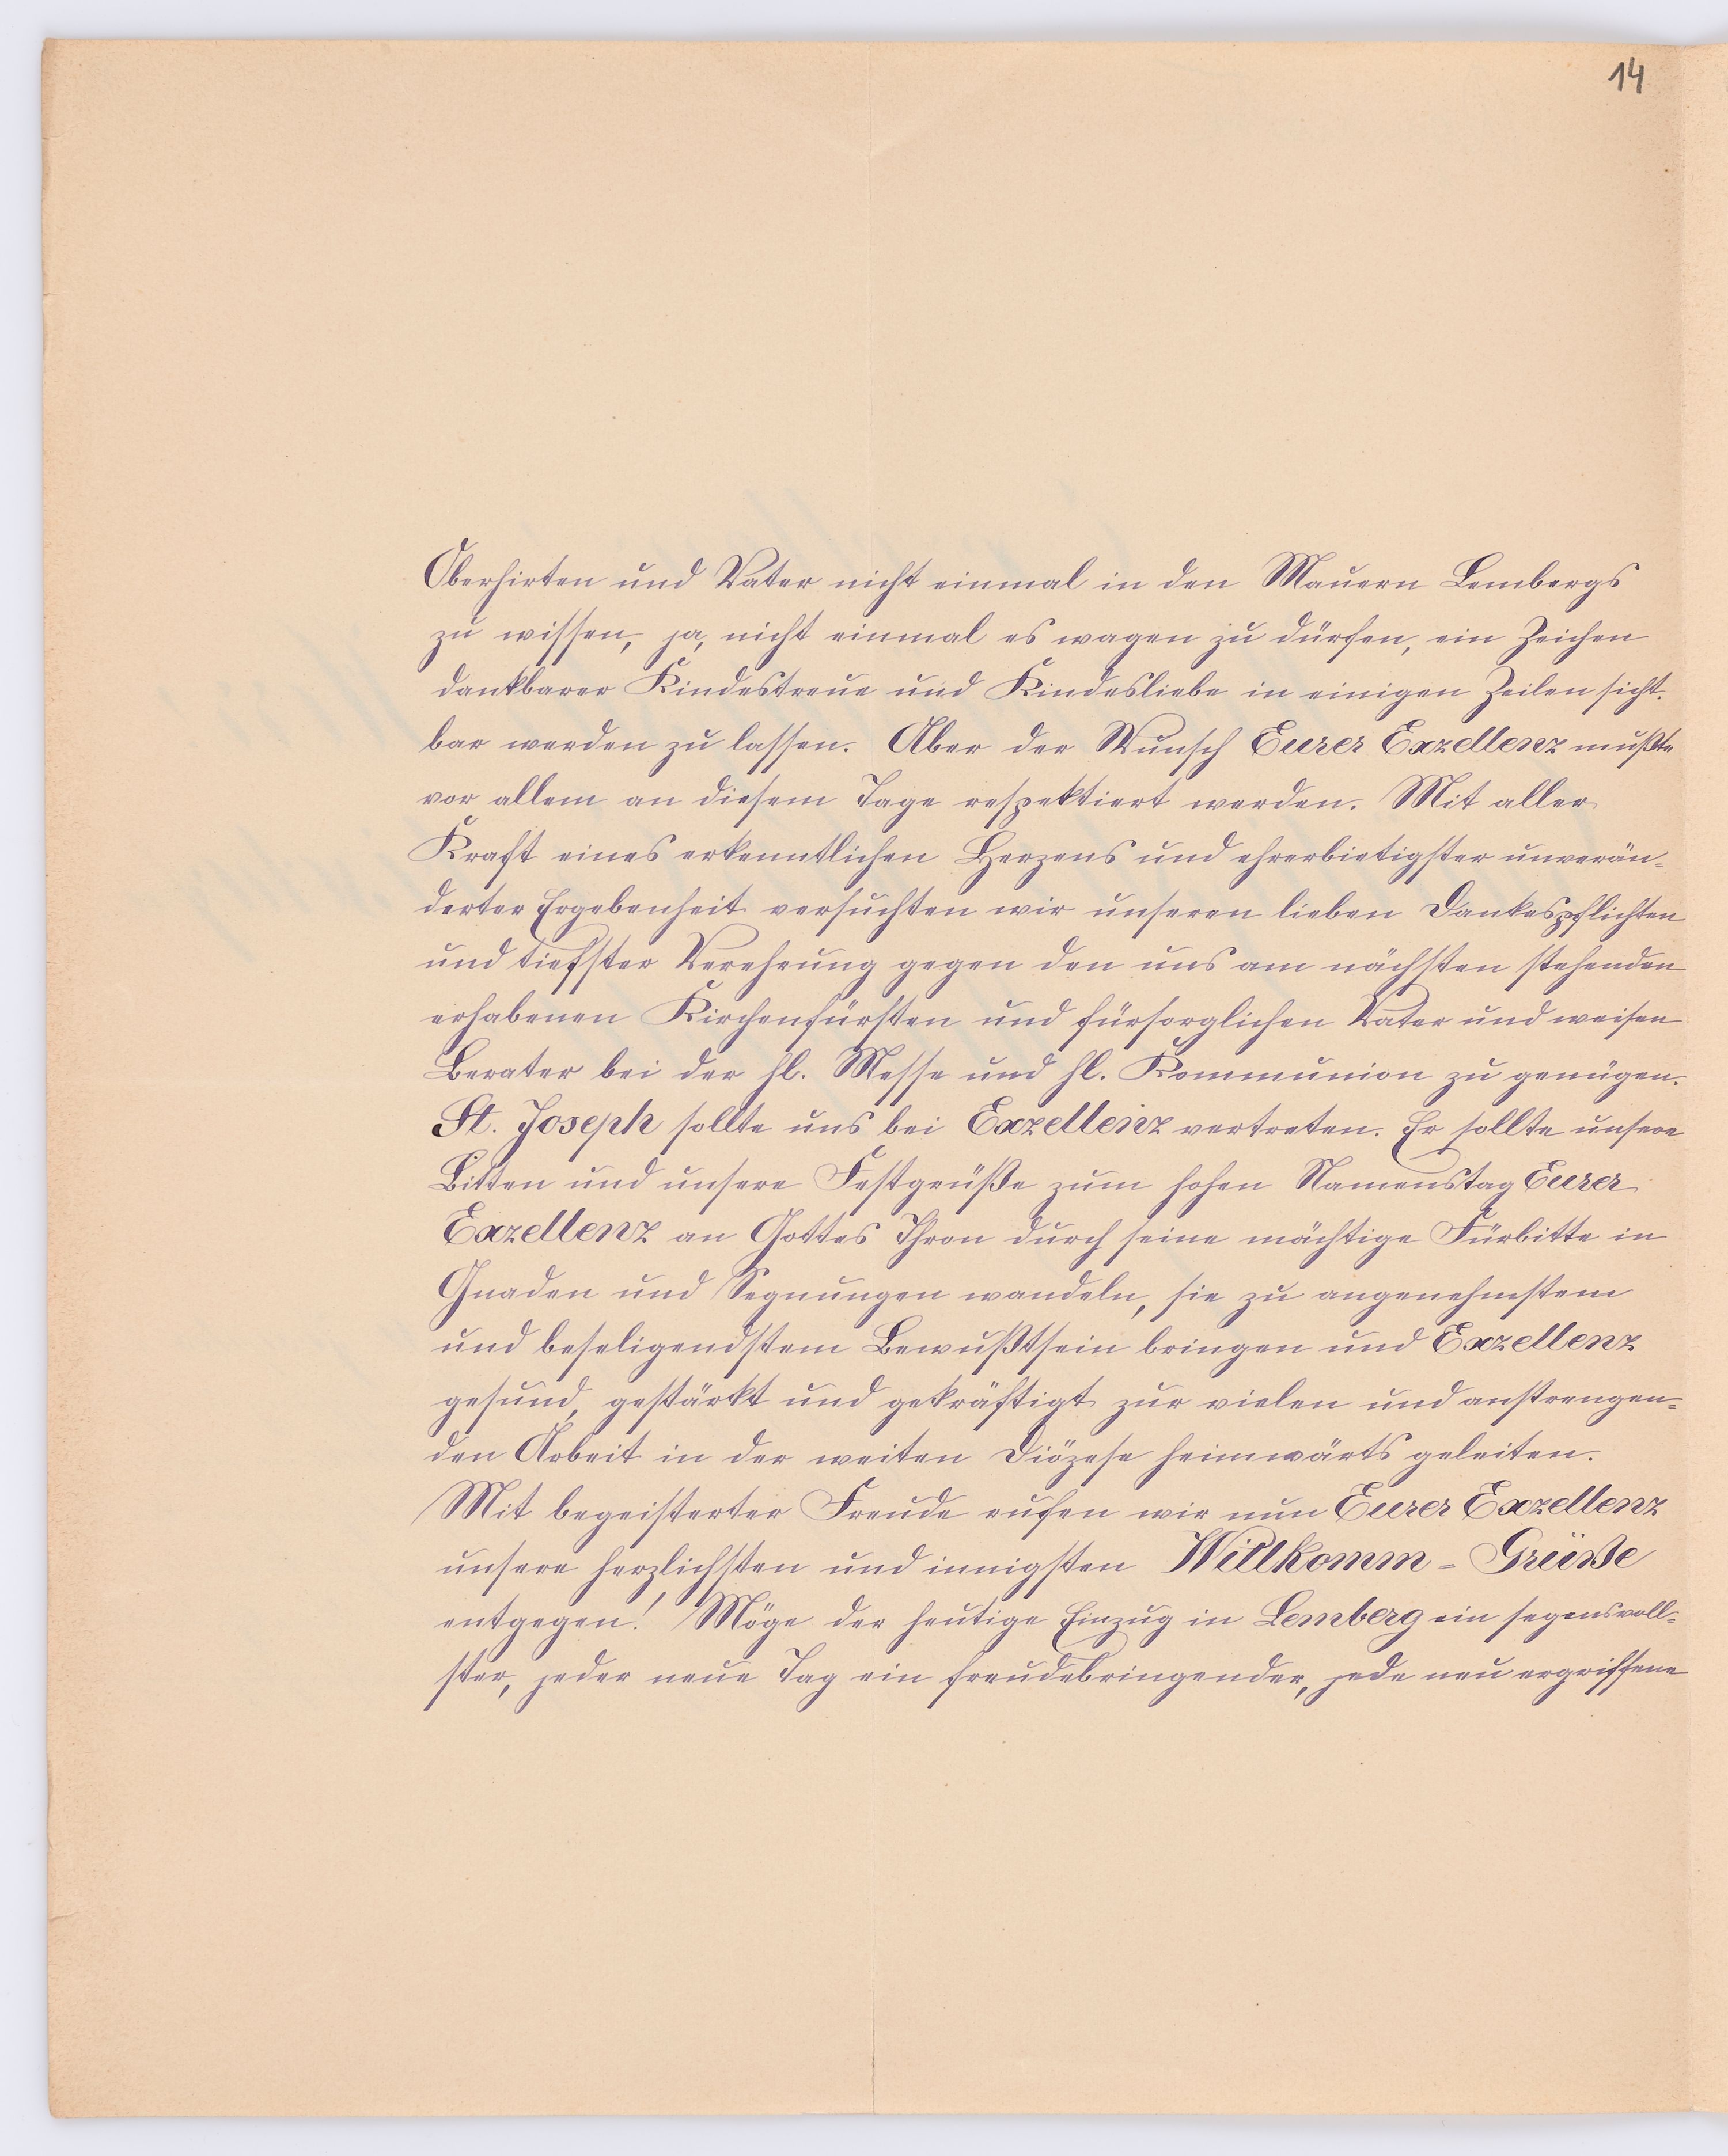 14
Oberhirten und Vater nicht einmal in den Mauern Lembergs
zu wissen, ja, nicht einmal es wagen zu dürfen, ein Zeichen
dankbarer Kindestreue und Kindesliebe in einigen Zeilen sicht-
bar werden zu lassen. Aber der Wunsch Eurer Exzellenz mußte
vor allem an diesem Tage respektiert werden. Mit aller
Kraft eines erkenntlichen Herzens und ehrerbietigster unverän-
derter Ergebenheit versuchten wir unseren lieben Dankespflichten
und tiefster Verehrung gegen den uns am nächsten stehenden
erhabenen Kirchenfürsten und fürsorglichen Vater und weisen
Berater bei der hl. Messe und hl. Kommunion zu genügen.
St. Joseph sollte uns bei Exzellenz vertreten. Er sollte unsere
Bitten und unsere Festgrüße zum hohen Namenstag Eurer
Exzellenz an Gottes Thron durch seine mächtige Fürbitte in
Gnaden und Segnungen wandeln, sie zu angenehmstem
und beseligendstem Bewußtsein bringen und Exzellenz
gesund, gestärkt und gekräftigt zur vielen und anstrengen-
den Arbeit in der weiten Diözese heimwärts geleiten.
Mit begeisterter Freude rufen wir nun Eurer Exzellenz
unsere herzlichsten und innigsten Willkomm-Grüße
entgegen! Möge der heutige Einzug in Lemberg ein segensvoll-
ster, jeder neue Tag ein freudebringender, jede neu ergriffene